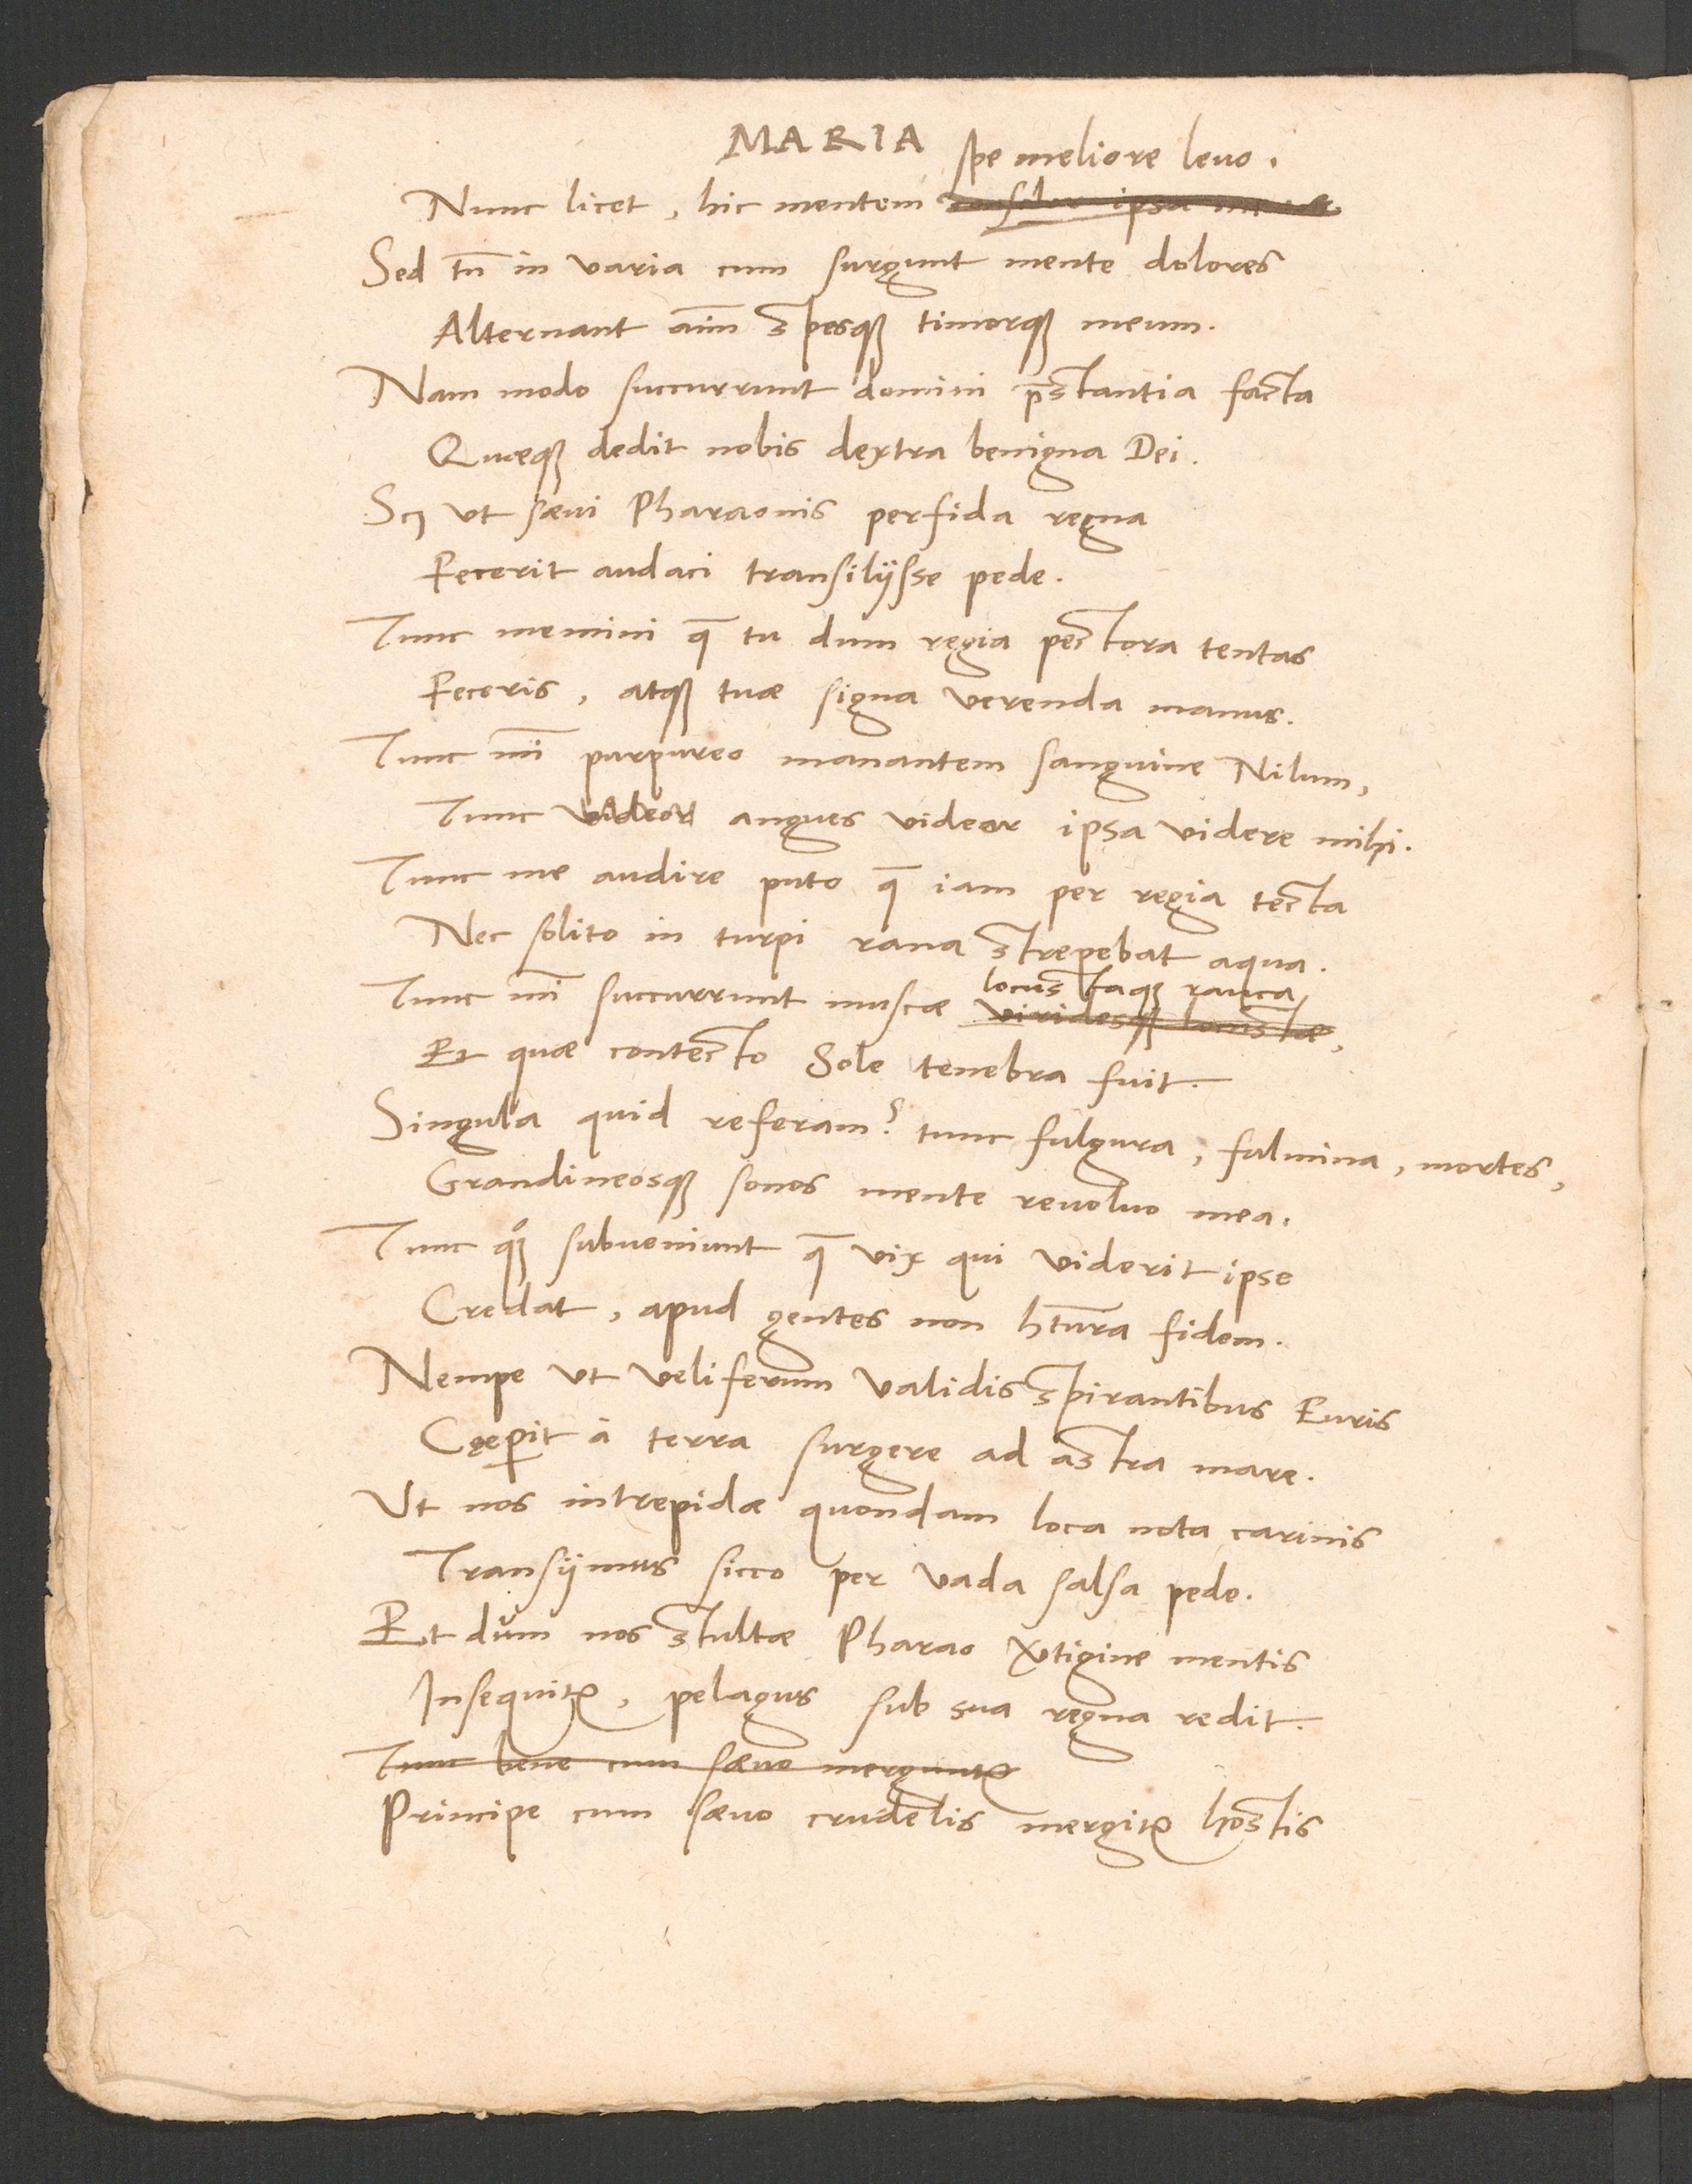 MARIA
spe meliore leuo.
Nunc licet, hic mentem consolor ipsa
Sed tn̄ in varia cum surgunt mente dolores
Alternant aīm spesq; timorq; meum.
Nam modo succurrunt domini p̄stantia facta
Quæq; dedit nobis dextra benigna Dei.
Scꝫ vt sæui Pharaonis perfida regna
Fecerit audaci transilijsse pede.
Tunc memini q̄ tu dum regia pectora tentas
Feceris, atq; tuæ signa verenda manus.
Tunc mī purpureo manantem sanguine Nilum,
Tunc videor angues videor ipsa videre mihi.
Tunc me audire puto q̄ iam per regia tecta
Nec solito in turpi rana strepebat aqua.
locustaq; rauca
Tunc mī succurrunt muscæ viridesq; locustæ,
Et quæ contecto Sole tenebra fuit.
Singula quid referam? tunc fulgura, fulmina, mortes,
Grandineosq; sonos mente reuoluo mea.
Tunc qꝫ° subueniunt q̄ vix qui viderit ipse
Credat, apud gentes non hr̄tura fidem.
Nempe vt veliferum validis spirantibus Euris
Cœperit à terra surgere ad astra mare.
Vt nos intrepidæ quondam loca nota carinis
Transijmus sicco per vada salsa pede.
Et dum nos stultæ Pharao v̄tigine mentis
Insequitꝰ, pelagus sub sua regna redit.
Tunc bene cum sæuo merguntꝰ
Principe cum sæuo crudelis mergitꝰ hostis